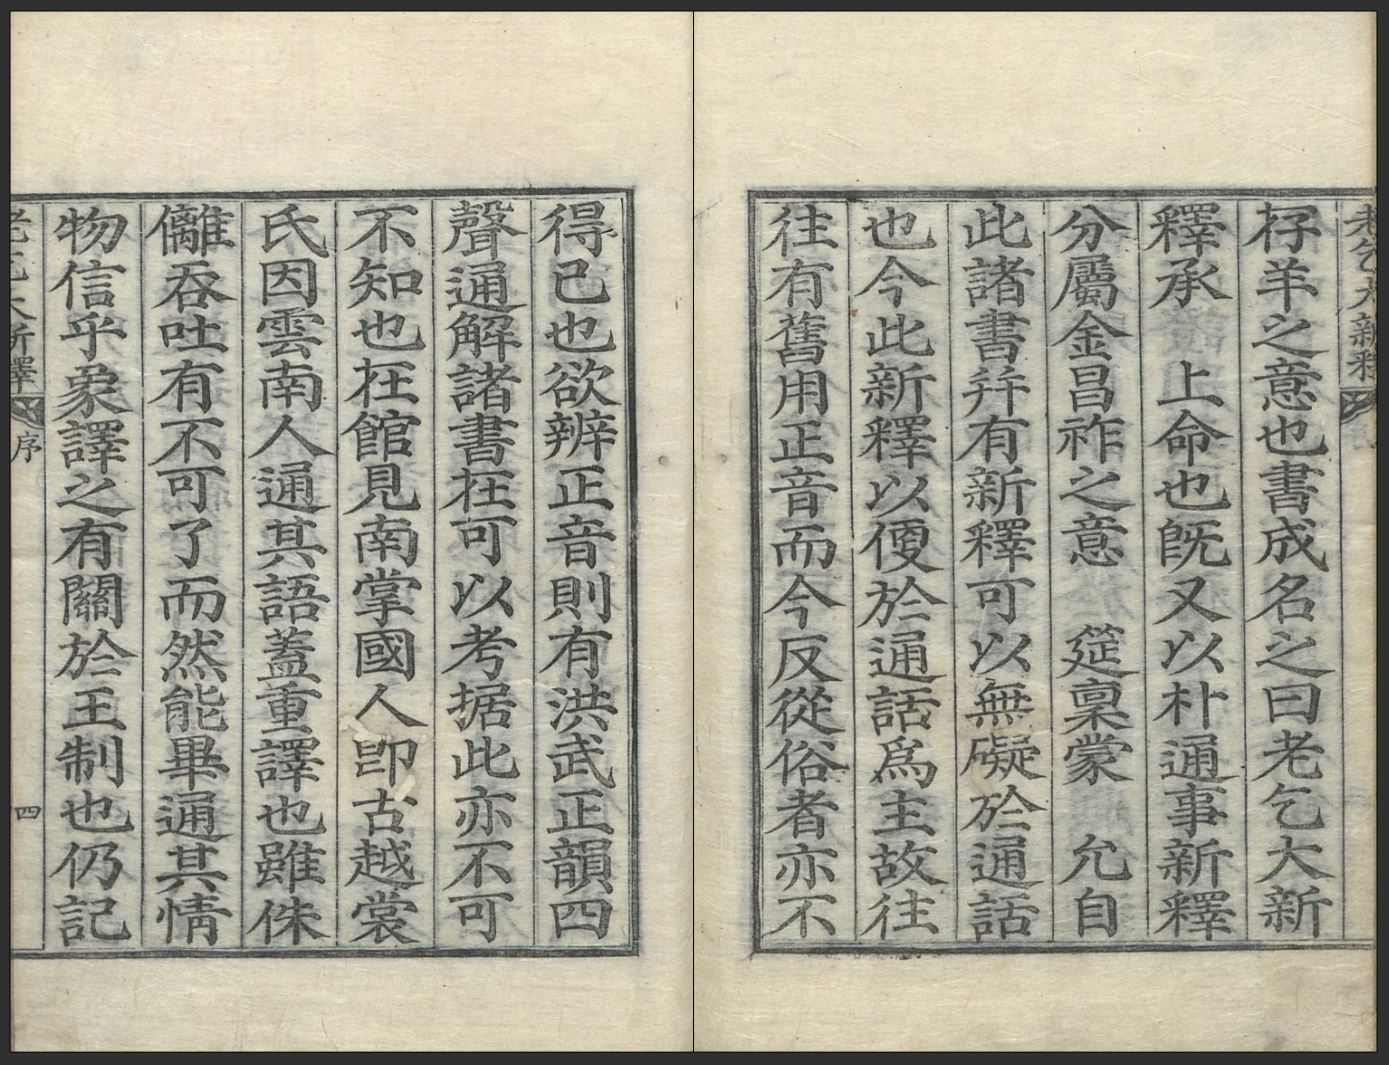 老乞大新釋
存羊之意也書成名之曰老乞大新
釋承 上命也旣又以朴通事新釋
分屬金昌祚之意 筵稟蒙 允自
此諸書幷有新釋可以無礙於通話
也今此新釋以便於通話爲主故往
往有舊用正音而今反從俗者亦不
得已也欲辨正音則有洪武正韻四
聲通解諸書在可以考据此亦不可
不知也在館見南掌國人卽古越裳
氏因雲南人通其語蓋重譯也雖侏
㒧吞吐有不可了而然能畢通其情
物信乎象譯之有關於王制也仍記
老乞大新釋 序 四